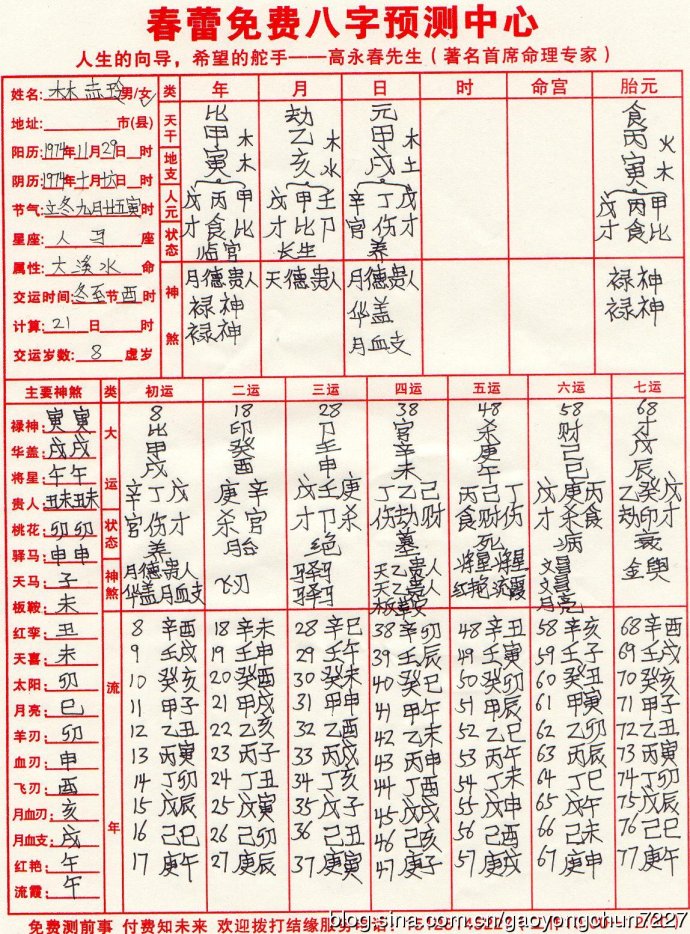 春蕾免费八字预测中心
人生的向导，希望的舵手——高永春先生（著名首席命理专家）
姓名: 林 玲 男/女 类 年 月 日 时 命宫 胎元
地址: 市(县)
阳历: 1974年11月29日 时
阴历: 1974年十月十六日 时
节气: 立冬九月廿五寅时
星座: 人马座
属性: 大溪水命
交运时间: 冬至节 酉时
计算: 21日 时
交运岁数: 8 虚岁
天干 比 劫 元 食
甲木 乙木 甲木 丙火
地支 寅木 亥水 戌土 寅木
人元 戊丙甲 戊甲壬 辛丁戊 戊丙甲
状态 才食比 才比卩 官伤才 才食比
临官 长生 养
神煞 月德贵人 天德贵人 月德贵人 禄神
禄神 华盖 禄神
禄神 月血支
主要神煞 类 初运 二运 三运 四运 五运 六运 七运
禄神: 寅寅
华盖: 戌戌
将星: 午午
贵人: 丑未丑未
桃花: 卯卯
驿马: 申申
天马: 子
板鞍: 未
红孪: 丑
天喜: 未
太阳: 卯
月亮: 巳
羊刃: 卯
血刃: 申
飞刃: 酉
月血刃: 亥
月血支: 戌
红艳: 午
流霞: 午
大运 8 18 28 38 48 58 68
比 印 卩 官 杀 财 才
甲 癸 壬 辛 庚 己 戊
戌 酉 申 未 午 巳 辰
辛丁戊 庚辛 戊壬庚 丁乙己 丙己丁 戊庚丙 乙癸戊
状态 官伤才 杀官 才卩杀 伤劫财 食财伤 才杀食 劫印才
养 胎 绝 墓 死 病 衰
神煞 月德贵人 飞刃 驿马 天乙贵人 将星将星 文昌 金舆
华盖月血支 驿马 天乙贵人 红艳流霞 文昌
月亮
流年
8 辛酉 18 辛未 28 辛巳 38 辛卯 48 辛丑 58 辛亥 68 辛酉
9 壬戌 19 壬申 29 壬午 39 壬辰 49 壬寅 59 壬子 69 壬戌
10 癸亥 20 癸酉 30 癸未 40 癸巳 50 癸卯 60 癸丑 70 癸亥
11 甲子 21 甲戌 31 甲申 41 甲午 51 甲辰 61 甲寅 71 甲子
12 乙丑 22 乙亥 32 乙酉 42 乙未 52 乙巳 62 乙卯 72 乙丑
13 丙寅 23 丙子 33 丙戌 43 丙申 53 丙午 63 丙辰 73 丙寅
14 丁卯 24 丁丑 34 丁亥 44 丁酉 54 丁未 64 丁巳 74 丁卯
15 戊辰 25 戊寅 35 戊子 45 戊戌 55 戊申 65 戊午 75 戊辰
16 己巳 26 己卯 36 己丑 46 己亥 56 己酉 66 己未 76 己巳
17 庚午 27 庚辰 37 庚寅 47 庚子 57 庚戌 67 庚申 77 庚午
免费测前事 付费知未来 欢迎拨打结缘服务
blog.sina.com.cn/gaoyongchun7227